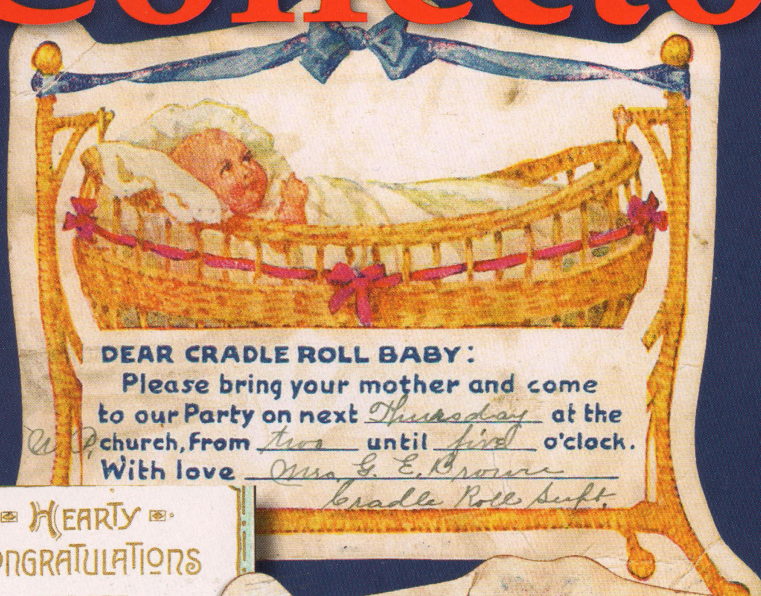 Collecto
DEAR CRADLE ROLL BABY:
Please bring your mother and come
to our Party on next Thursday at the
U. P. church, from two until five o'clock.
With love Mrs. G. E. Brown
Cradle Roll Supt.
HEARTY
ONGRATULATIONS